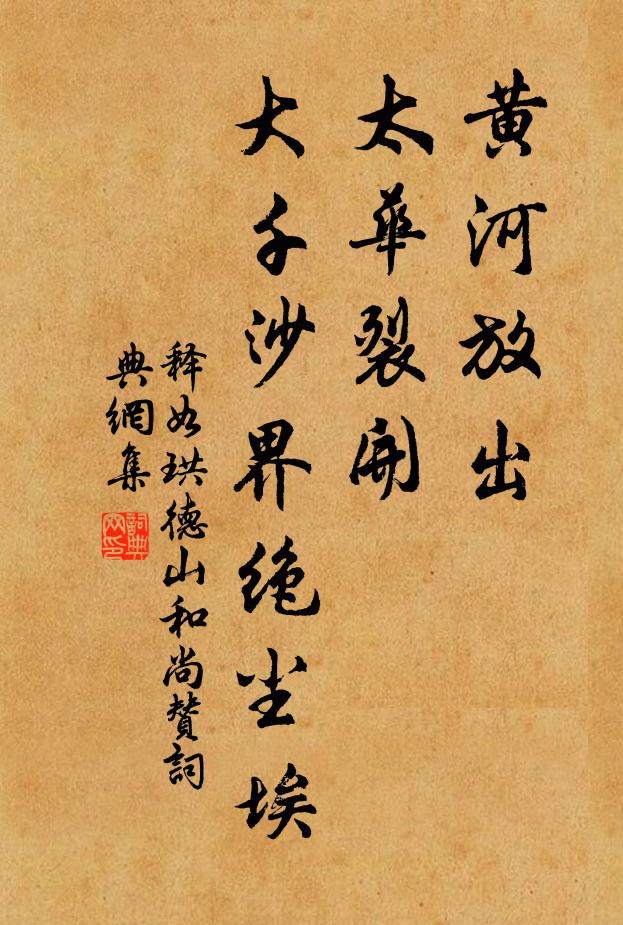 黄河放出
太華裂開
大千沙界绝尘埃
释如珙德山和尚赞詞
典網集
詞典
网印